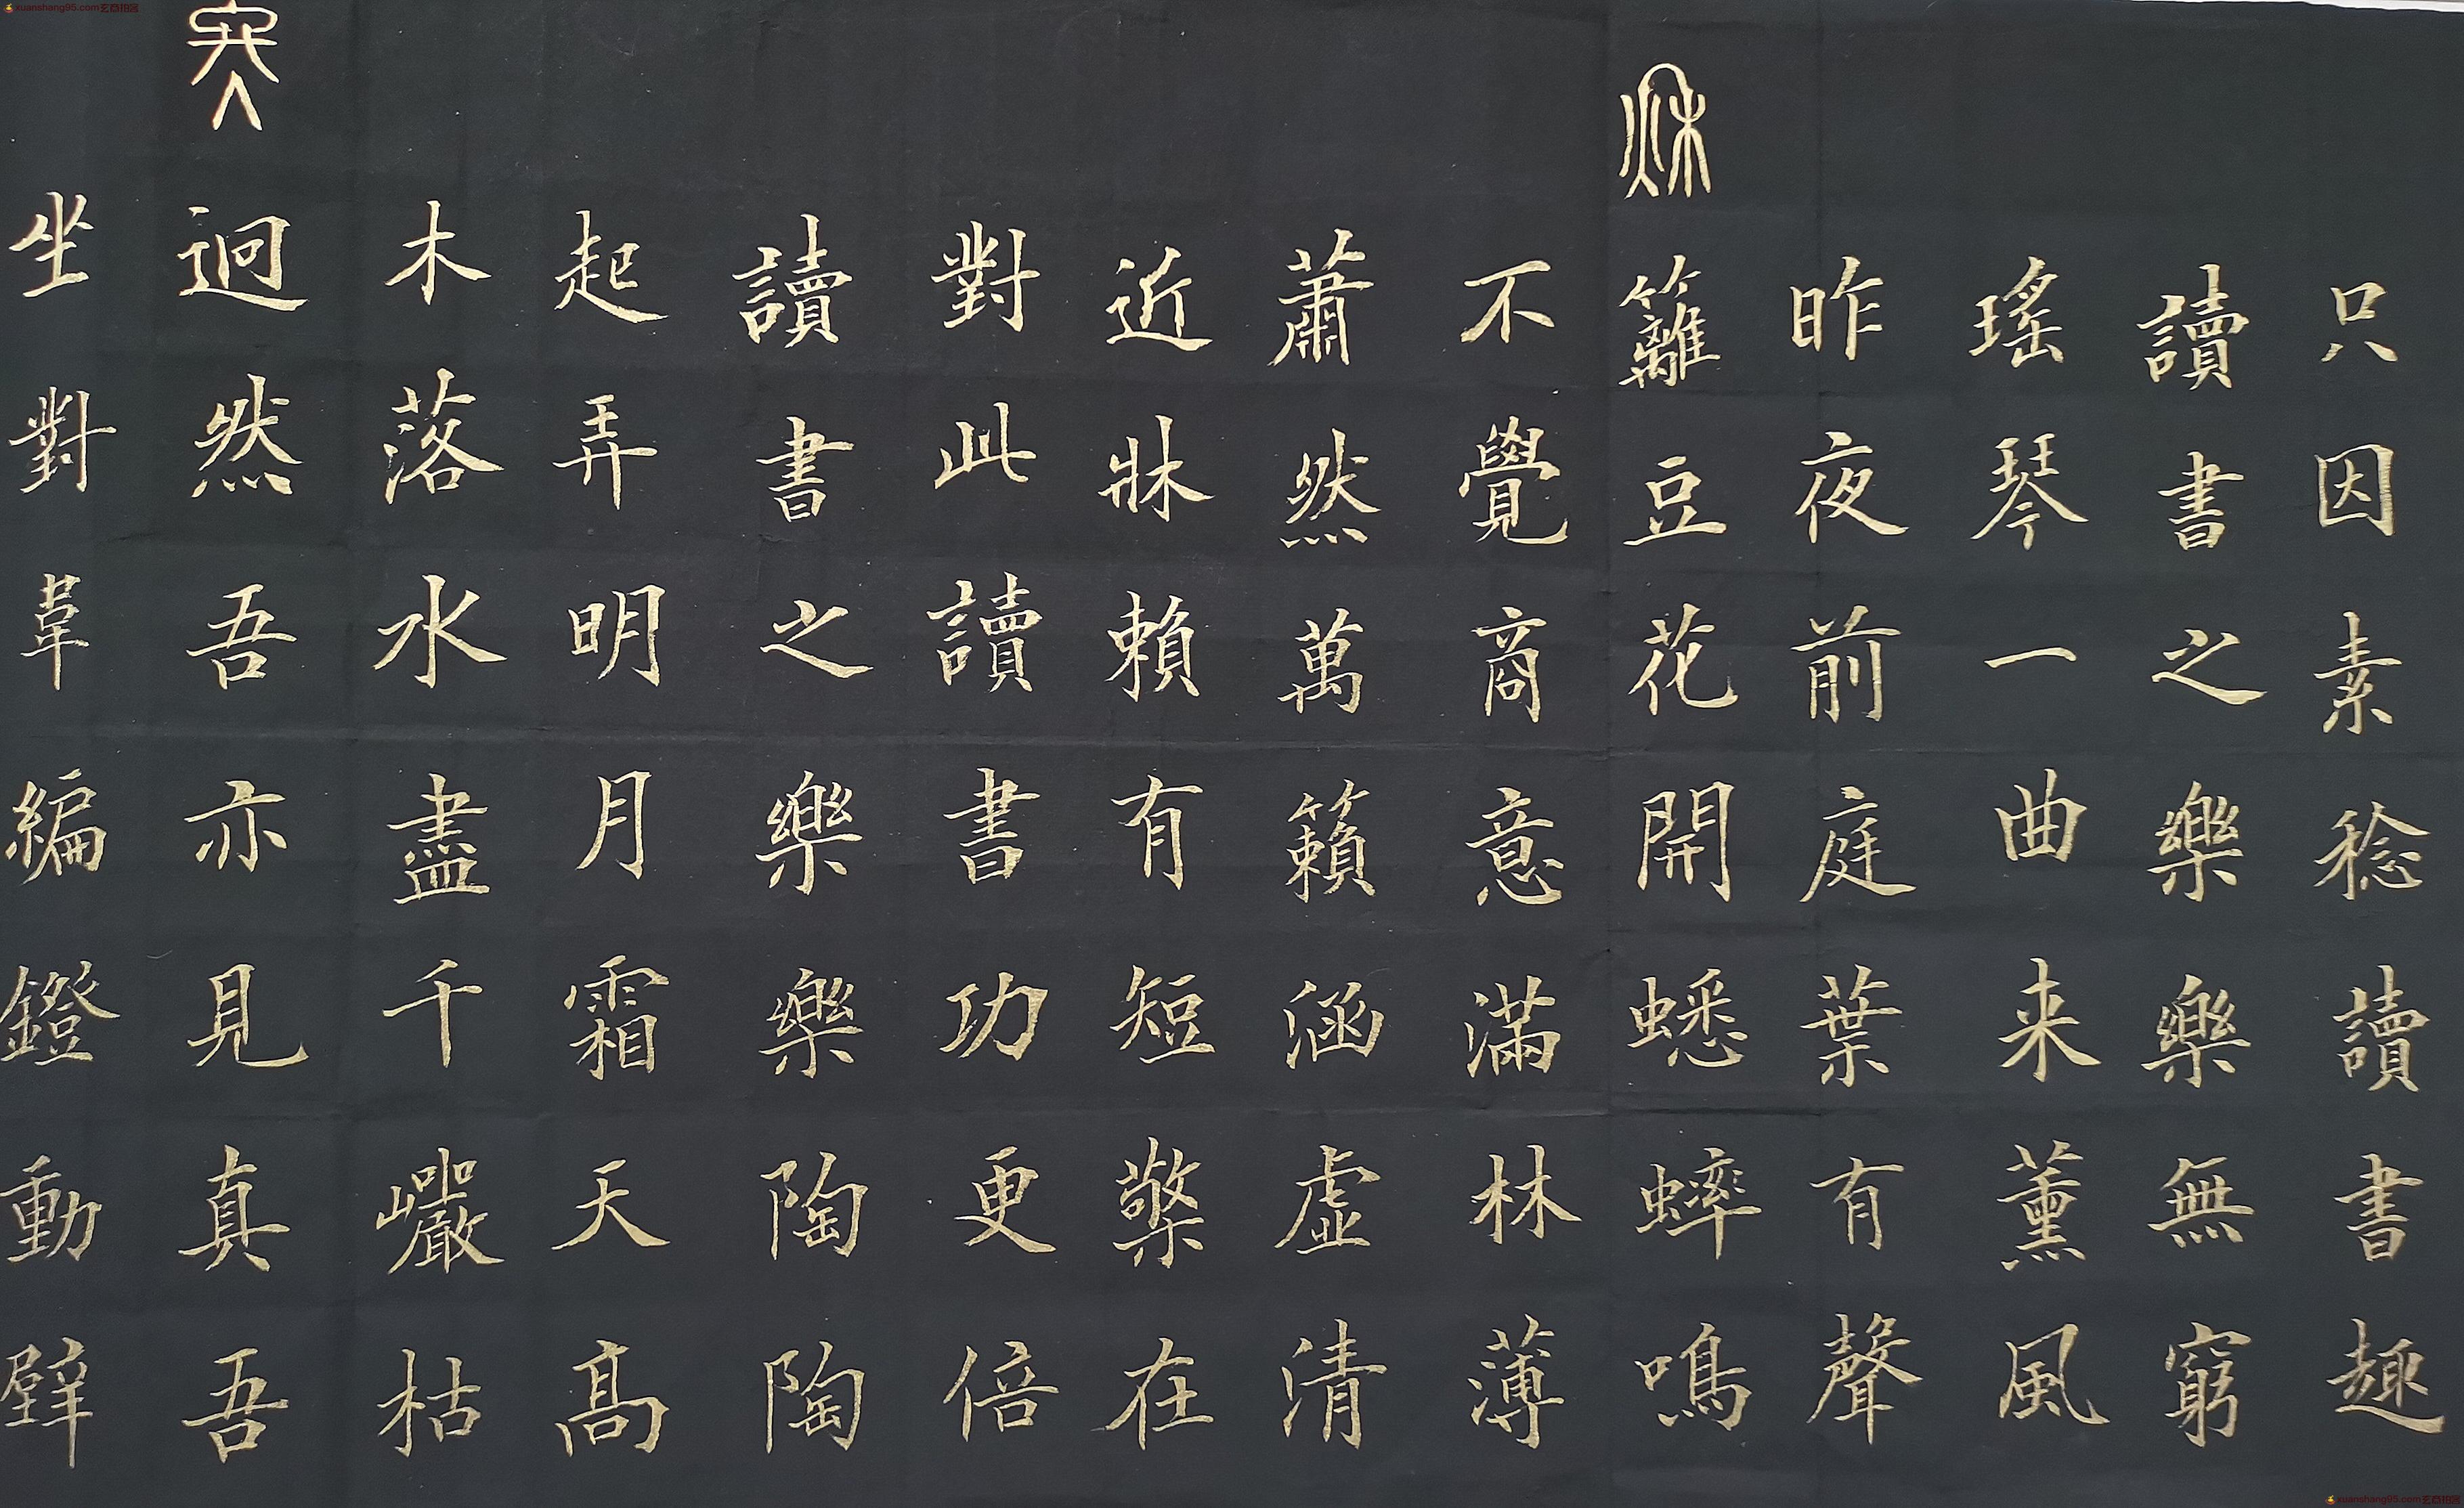 只因素稔讀書趣
讀書之樂樂無窮
瑤琴一曲来薰風
昨夜前庭葉有聲
秋
籬豆花開蟋蟀鳴
不覺商意滿林薄
蕭然萬籟涵虛清
近牀賴有短檠在
對此讀書功更倍
讀書之樂樂陶陶
起弄明月霜天高
木落水盡千巖枯
冬
迥然吾亦見真吾
坐對韋編鐙動壁
xuanshang95.com
xuanshang95.com